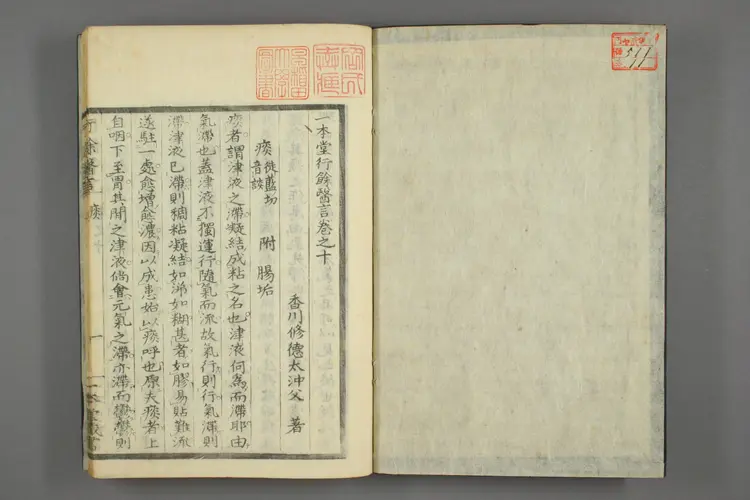 一本堂行餘醫言卷之十
香川修德太沖父 著
痰 徒藍切 音談 附 腸垢
痰者謂津液之滯凝結成粘之名也津液何爲而滯耶由
氣滯也蓋津液不獨運行隨氣而流故氣行則行氣滯則
滯津液已滯則稠粘凝結如涕如糊甚者如膠易貼難流
遂駐一處愈增餘濃因以成患始以痰呼也原夫痰者上
自咽下至胃其間之津液倘會元氣之滯亦滯而鬱鬱則
行餘醫言 痰 一